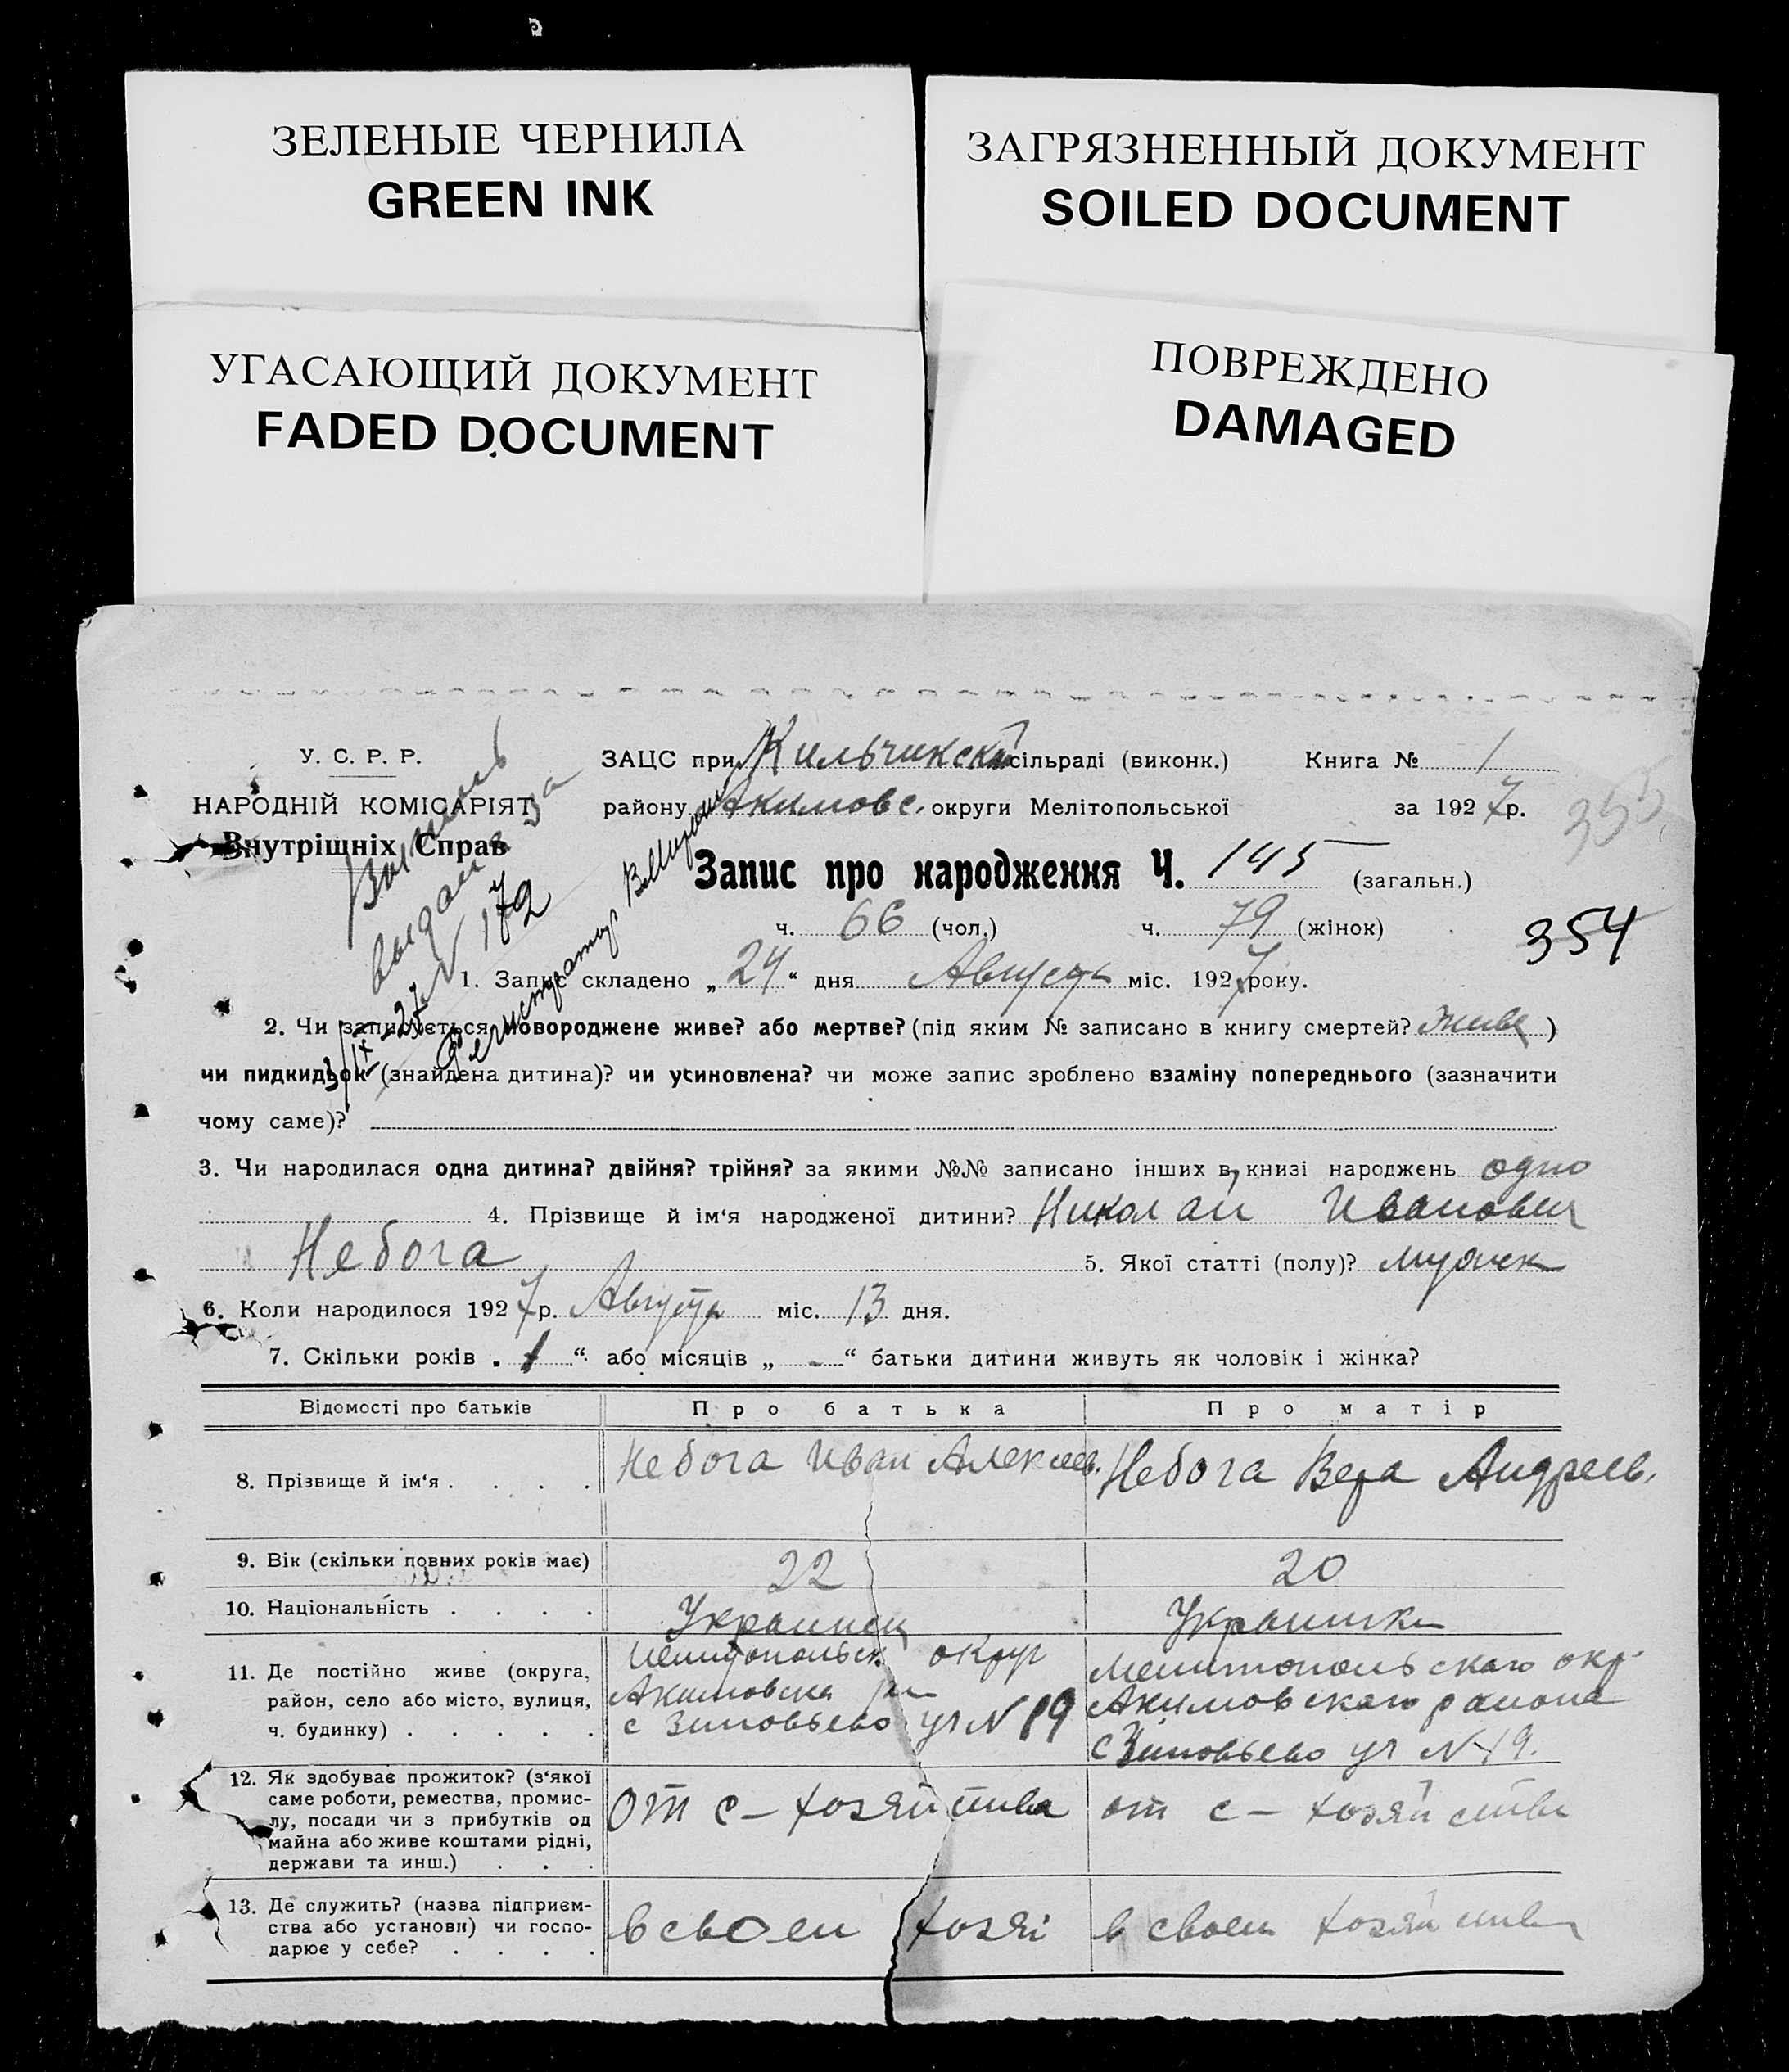 ЗЕЛЕНЫЕ ЧЕРНИЛА
GREEN INK
ЗАГРЯЗНЕННЫЙ ДОКУМЕНТ
SOILED DOCUMENT
УГАСАЮЩИЙ ДОКУМЕНТ
FADED DOCUMENT
ПОВРЕЖДЕНО
DAMAGED
У. С. Р. Р.
НАРОДНІЙ КОМІСАРІЯТ
Внутрішніх Справ
ЗАЦС при Кильчикской сільраді (виконк.) Книга № 1
району Акимовс. округи Мелітопольської за 1927 р.
355
Запис про народження Ч. 145 (загальн.)
ч. 66 (чол.) ч. 79 (жінок)
354
выдана за
N 172
Регистратор
1. Запис складено „24“ дня Августа міс. 1927 року.
2. Чи записується новороджене живе? або мертве? (під яким № записано в книгу смертей? живе)
чи пидкидьок (знайдена дитина)? чи усиновлена? чи може запис зроблено взаміну попереднього (зазначити
чому саме)?
3. Чи народилася одна дитина? двійня? трійня? за якими №№ записано інших в книзі народжень одно
4. Прізвище й ім‘я народженої дитини? Николай Иванович
Небога 5. Якої статті (полу)? мужск
6. Коли народилося 1927 р. Августа міс. 13 дня.
7. Скільки років „1“ або місяців „-“ батьки дитини живуть як чоловік і жінка?
Відомості про батьків Про батька Про матір
8. Прізвище й ім‘я . . . . Небога Иван Алексеев. Небога Вера Андреев.
9. Вік (скільки повних років має) 22 20
10. Національність . . . . Украинец Украинка
11. Де постійно живе (округа,
район, село або місто, вулиця,
ч. будинку) . . . . .
Мелитопольск округ
Акимовска рн
с Зиновьево уч N 19
Мелитопольскаго окр.
Акимовскаго района
с Зиновьево уч N 19.
12. Як здобуває прожиток? (з‘якої
саме роботи, ремества, промис-
лу, посади чи з прибутків од
майна або живе коштами рідні,
держави та инш.) . . .
от с-хозяйства
от с-хозяйства
13. Де служить? (назва підприєм-
ства або установи) чи госпо-
дарює у себе? . . . .
в своем хозяй
в своем хозяйстве